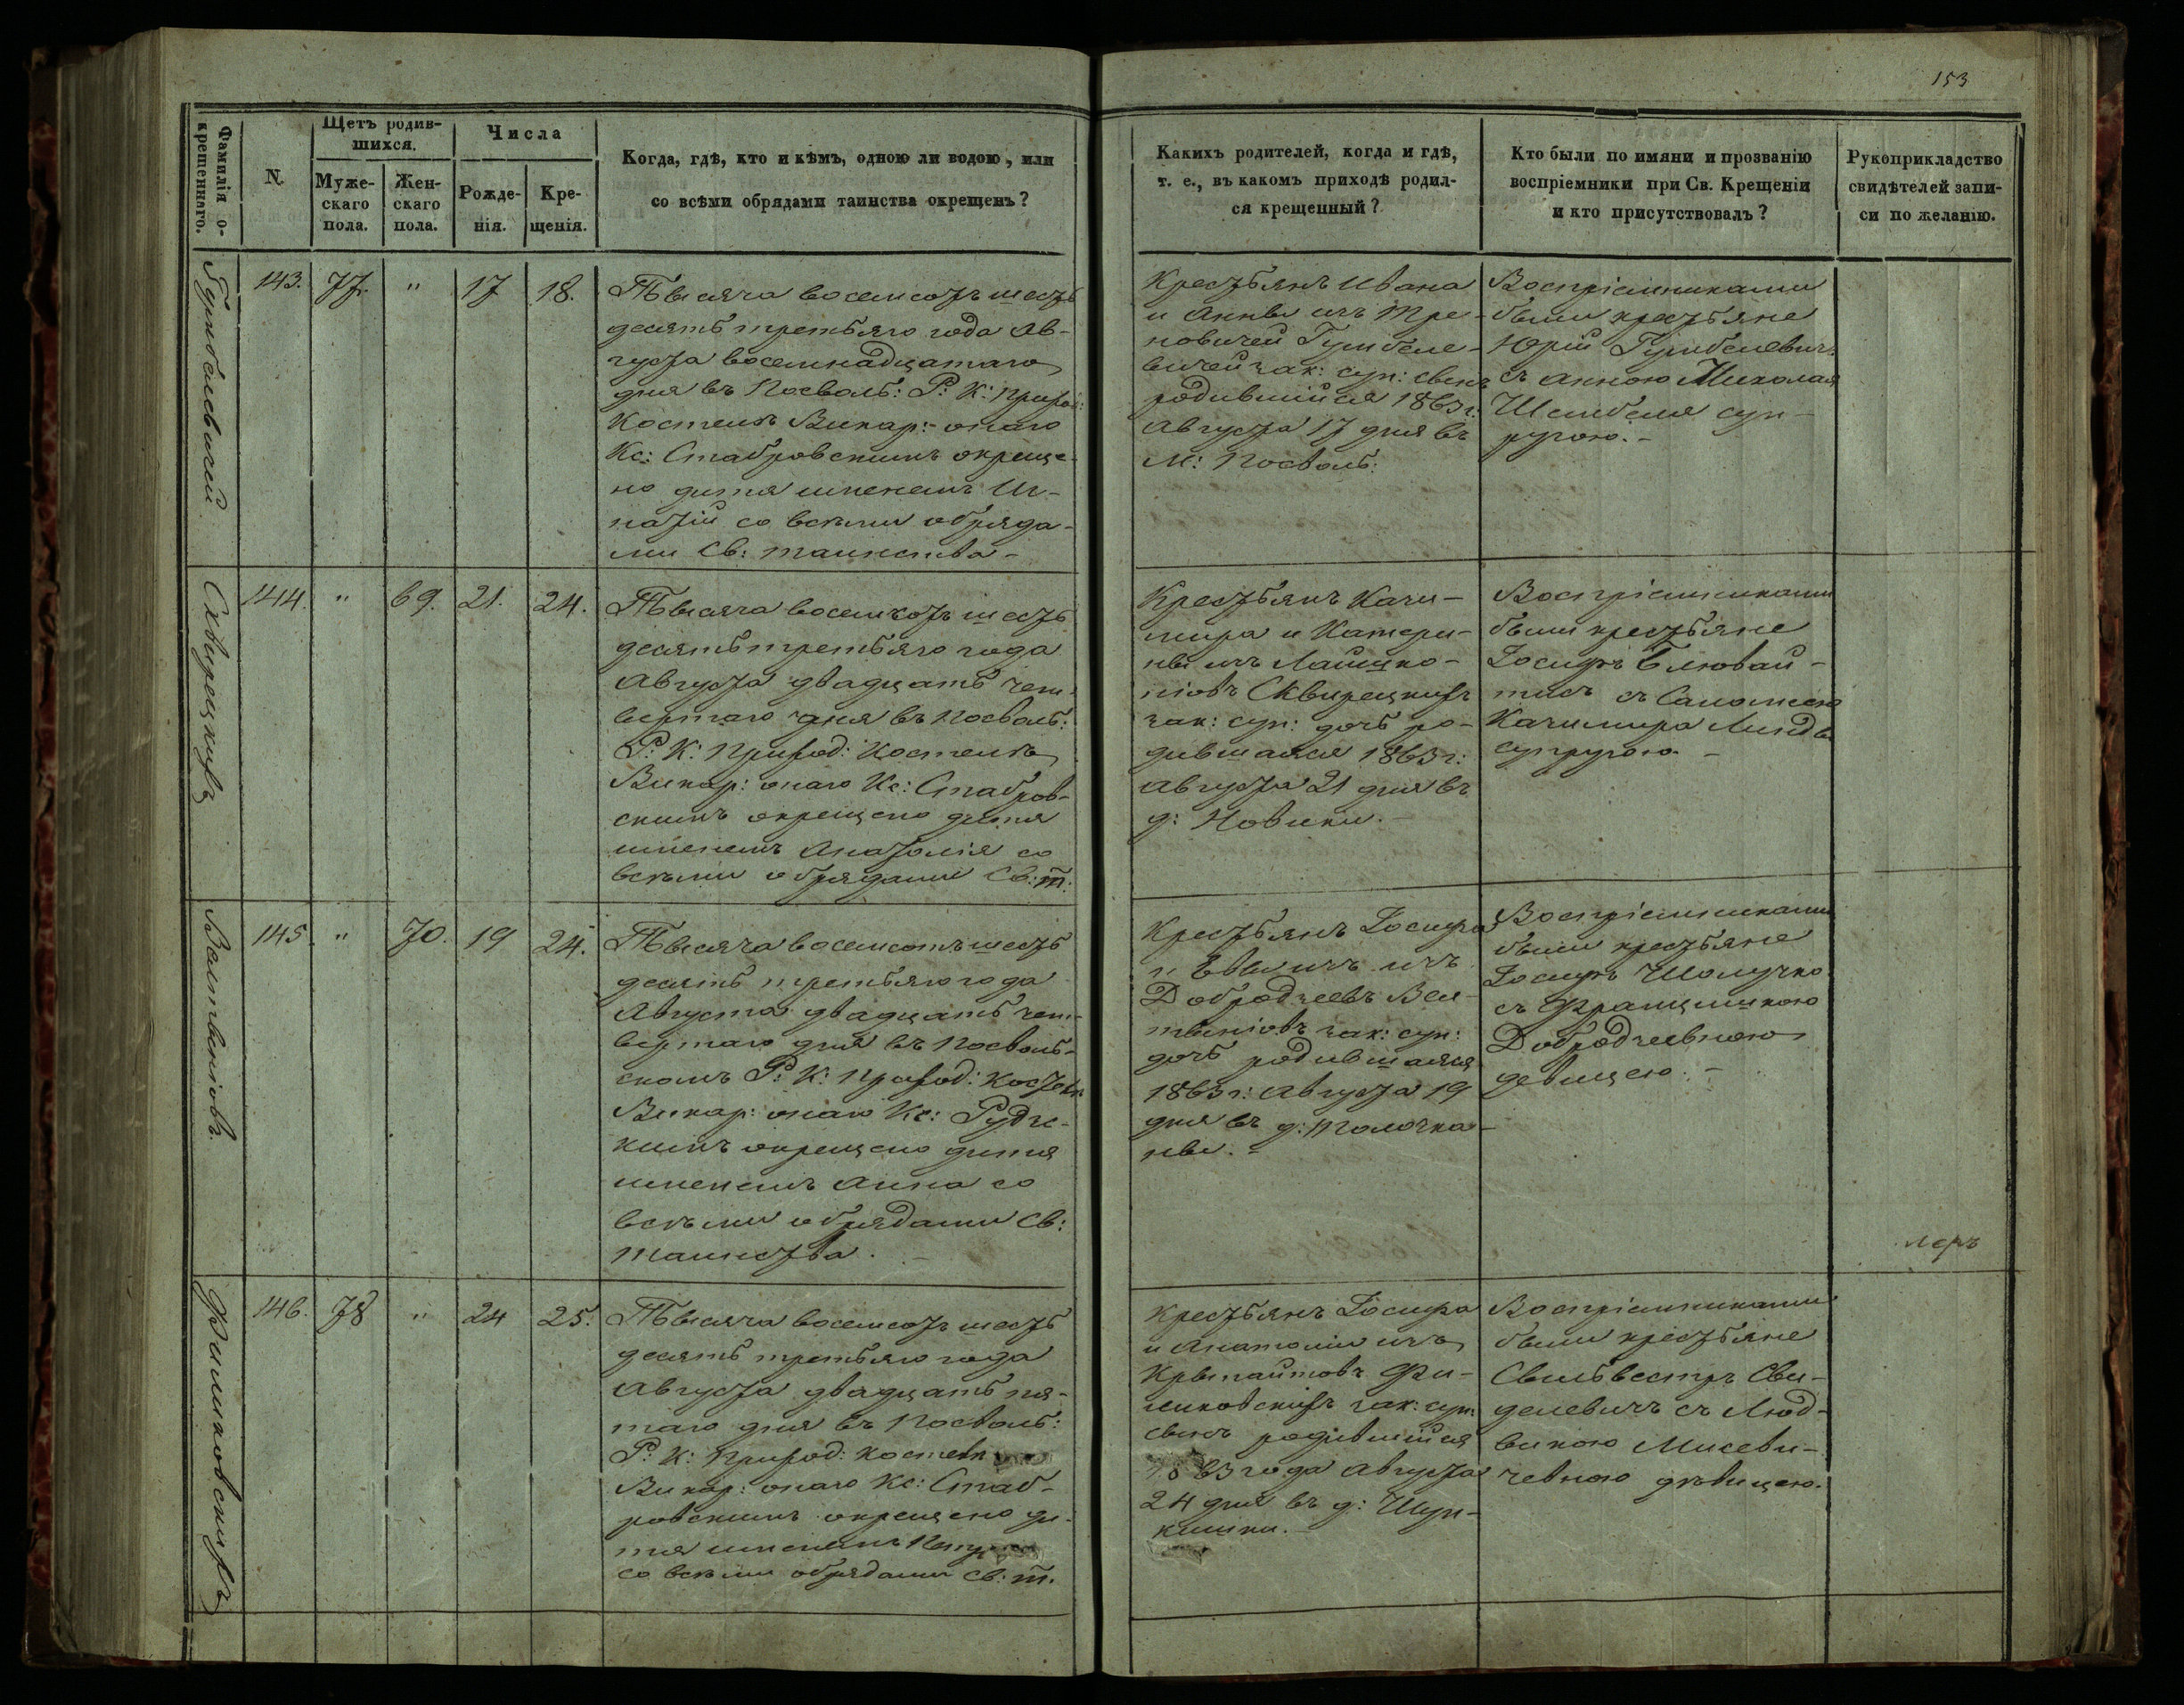 153
Фамилія о-
крещеннаго.
N.
Щетъ родив-
шихся.
Муже-
скаго
пола.
Жен-
скаго
пола.
Числа
Рожде-
нія.
Кре-
щенія.
Когда, гдѣ, кто и кѣмъ, одною ли водою, или
со всѣми обрядами таинства окрещенъ?
Какихъ родителей, когда и гдѣ,
т. е., въ какомъ приходѣ родил-
ся крещенный?
Кто были по имяни и прозванію
воспріемники при Св. Крещеніи
и кто присутствовалъ?
Рукоприкладство
свидѣтелей запи-
си по желанію.
Гумбелевичей
143. 77. " 17 18.
Тысяча восемсотъ шесть
десятъ третьяго года Ав-
густа восемнадцатаго
дня въ Посволь: Р: К: Прихо:
Костелѣ Викар: онаго
Кс: Стабровскимъ окреще-
но дитя именемъ Иг-
натій со всѣми обряда-
ми Св: таинства –
Крестьянъ Ивана
и Анны изъ Тре-
новичей Гумбеле-
вичей зак: суп: сынъ
родившійся 1863 г:
Августа 17 дня въ
М: Посволь:
Воспріемниками
были крестьяне
Юрій Гумбелевич:
съ Анною Николая
Шембеля суп-
ругою. –
Сквирецкихъ
144. " 69. 21. 24.
Тысяча восемсотъ шесть
десятъ третьяго года
Августа двадцать чет-
вертаго дня въ Посволь:
Р: К: Приход: Костелѣ
Викар: онаго Кс: Стабров-
скимъ окрещено дитя
именемъ Анатолія со
всѣми обрядами Св: т:
Крестьянъ Кази-
мира и Катери-
ны изъ Лайшко-
ніовъ Сквирецкихъ
зак: суп: дочь ро-
дившаяся 1863 г:
Августа 21 дня въ
д: Новики. –
Воспріемниками
были крестьяне
Іосифъ Блювай-
тисъ съ Саломеею
Казимира Линды
супругою. –
Велтвеніовъ.
145 " 70. 19 24.
Тысяча восемсотъ шесть
десятъ третьяго года
Августа двадцать чет-
вертаго дня въ Посволь-
скомъ Р: К: Приход: Костелѣ
Викар: онаго Кс: Рудзе-
кимъ окрещено дитя
именемъ Анна со
всѣми обрядами Св:
таинства. –
Крестьянъ Іосифа
и Евы изъ изъ
Добродзеевъ Вел-
твеніовъ зак: суп:
дочь родившаяся
1863 г: Августа 19
дня въ д: Толочка-
ны. –
Воспріемниками
были крестьяне
Іосифъ Шолучко
съ Францишкою
Добродзеевною
девицею. –
Филиковскихъ
146. 78 " 24 25.
Тысяча восемсотъ шесть
десятъ третьяго года
Августа двадцать пя-
таго дня въ Посволь:
Р: К: Приход: Костелѣ
Викар: онаго Кс: Стаб-
ровскимъ окрещено ди-
тя именемъ
со всѣми обрядами Св: т.
Крестьянъ Іосифа
и Анатоліи изъ
Крыпайтовъ Фи-
ликовскихъ зак: суп:
сынъ родившійся
1863 года Августа
24 дня въ д: Шун-
кишки. –
Воспріемниками
были крестьяне
Сильвестръ Сви-
делевичъ съ Люд-
викою Мисеви-
чевною дѣвицею.